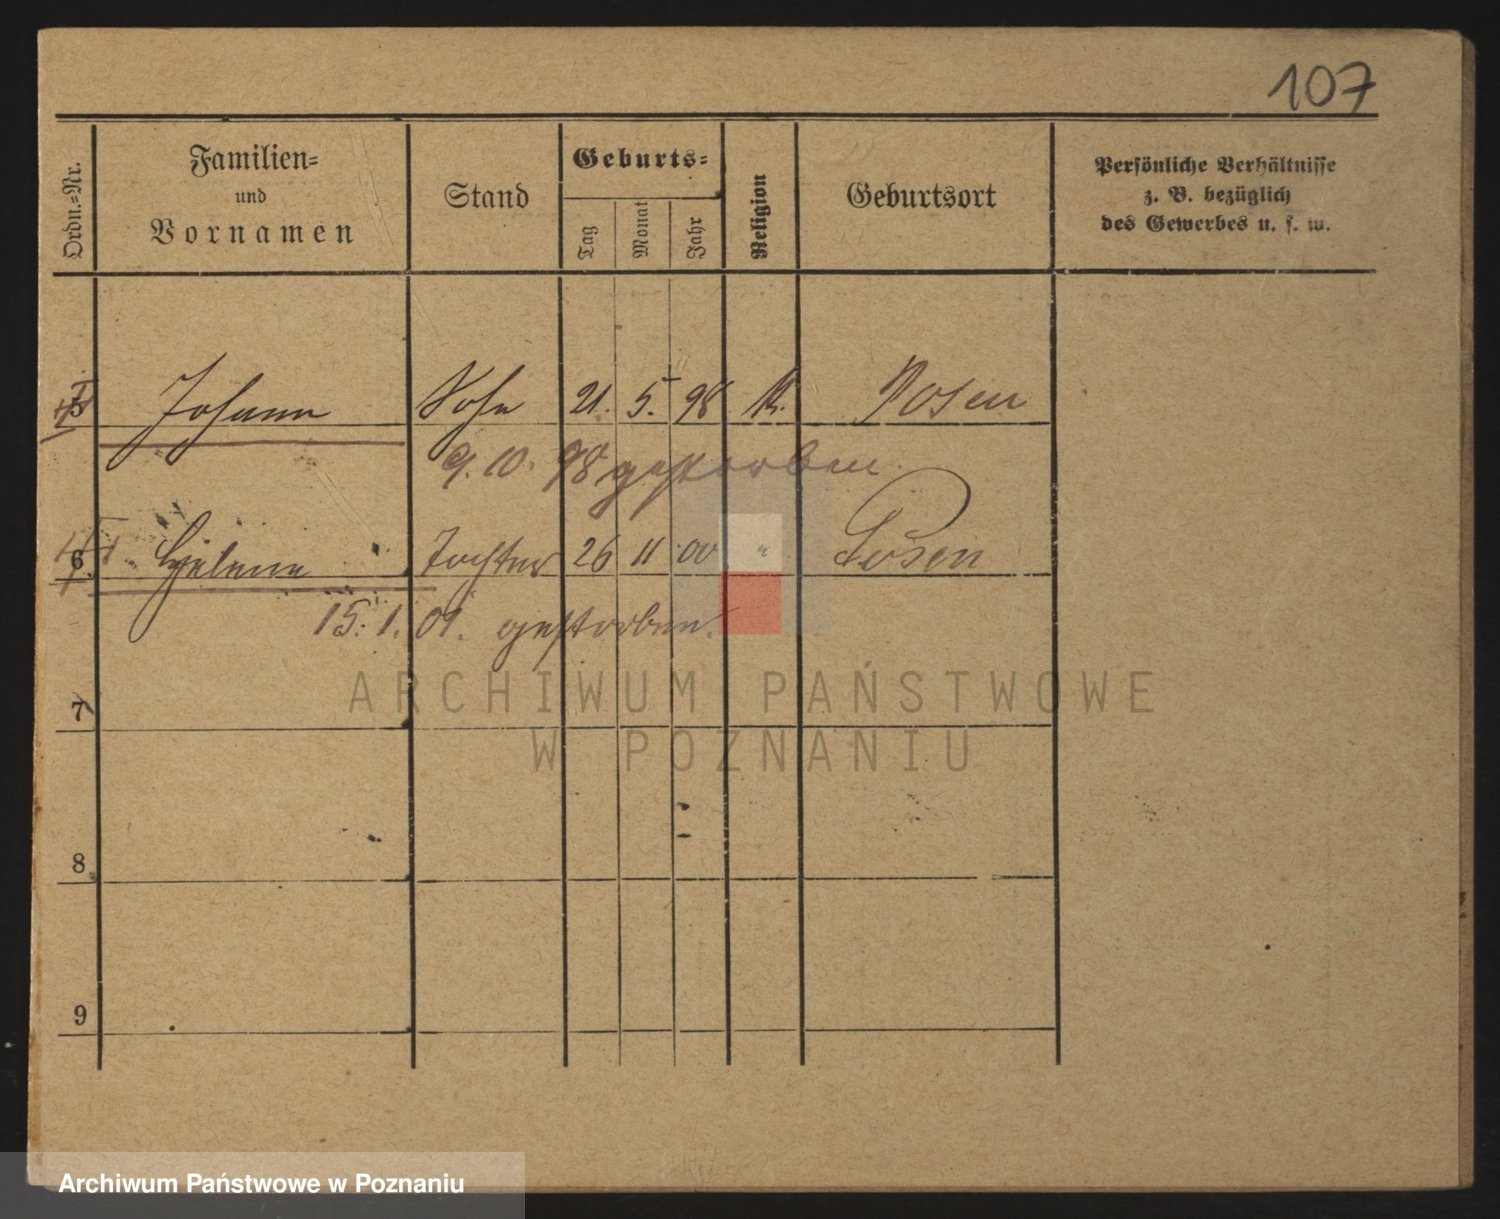 107
Ordn.-Nr.
Familien-
und
Vornamen
Stand
Geburts-
Tag
Monat
Jahr
Religion
Geburtsort
Persönliche Verhältnisse
z. B. bezüglich
des Gewerbes u. s. w.
5 Johann Sohn 21. 5. 98 k. Posen
9. 10. 98 gestorben.
6 Helene Tochter 26 11 00 " Posen
15. 1. 01. gestorben.
ARCHIWUM PAŃSTWOWE
7
W POZNANIU
8
9
Archiwum Państwowe w Poznaniu